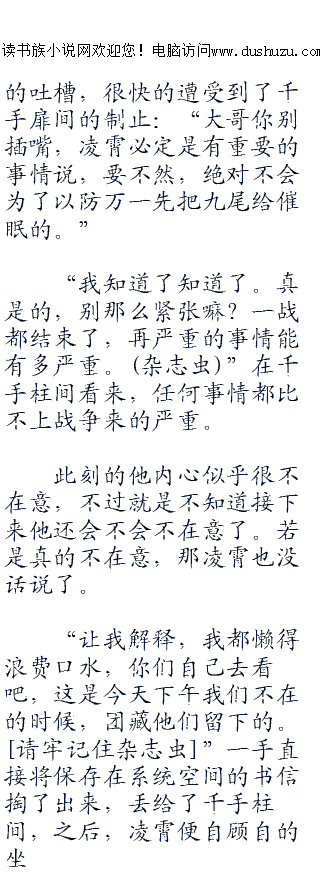 读书族小说网欢迎您！电脑访问www.dushuzu.com
的吐槽，很快的遭受到了千
手扉间的制止：“大哥你别
插嘴，凌霄必定是有重要的
事情说，要不然，绝对不会
为了以防万一先把九尾给催
眠的。”
“我知道了知道了。真
是的，别那么紧张嘛？一战
都结束了，再严重的事情能
有多严重。(杂志虫)”在千
手柱间看来，任何事情都比
不上战争来的严重。
此刻的他内心似乎很不
在意，不过就是不知道接下
来他还会不会不在意了。若
是真的不在意，那凌霄也没
话说了。
“让我解释，我都懒得
浪费口水，你们自己去看
吧，这是今天下午我们不在
的时候，团藏他们留下的。
[请牢记住杂志虫]”一手直
接将保存在系统空间的书信
掏了出来，丢给了千手柱
间，之后，凌霄便自顾自的
坐